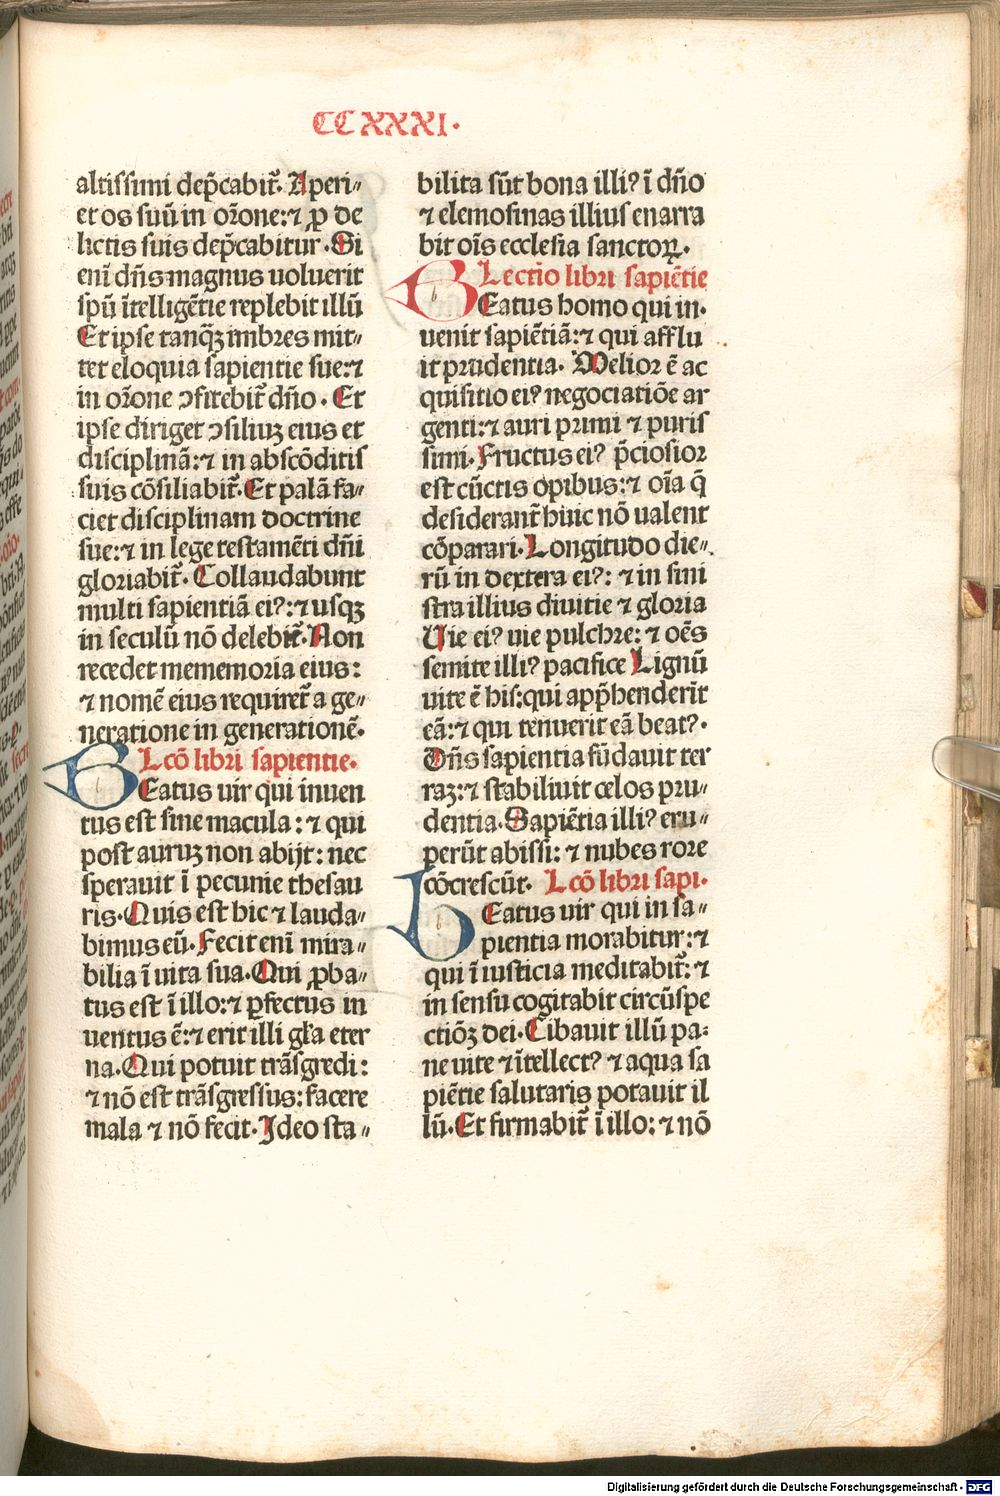 CCXXXI.
altissimi dep̄cabit᷒. Aperi⸗
et os suū in or̄one: ⁊ ꝓ de
lictis suis dep̄cabitur. Si
enī dn̄s magnus uoluerit
spū ītelligētie replebit illū
Et ipse tanqꝫ imbres mit⸗
tet eloquia sapientie sue: ⁊
in or̄one ↄfitebit᷒ dn̄o. Et
ipse diriget ↄsiliuꝫ eius et
disciplinā: ⁊ in abscōditis
suis cōsiliabit᷒. Et palā fa⸗
ciet disciplinam doctrine
sue: ⁊ in lege testamēti dn̄i
gloriabit᷒. Collaudabunt
multi sapientiā eiꝰ: ⁊ usqꝫ
in seculū nō delebit᷒. Non
recedet mememoria eius:
⁊ nomē eius requiret᷒ a ge⸗
neratione in generationē.
Lcō libri sapientie.
BEatus uir qui inuen
tus est sine macula: ⁊ qui
post auruꝫ non abijt: nec
sperauit ī pecunie thesau
ris. Quis est hic ⁊ lauda⸗
bimus eū. Fecit enī mira⸗
bilia ī uita sua. Qui ꝓba⸗
tus est ī illo: ⁊ ꝑfectus in
uentus ē: ⁊ erit illi gl̄a eter
na. Qui potuit trāsgredi:
⁊ nō est trāsgressus: facere
mala ⁊ nō fecit. Ideo sta⸗
bilita sūt bona illiꝰ ī dn̄o
⁊ elemosinas illius enarra
bit oīs ecclesia sanctoꝝ.
Lectio libri sapiētie
BEatus homo qui in⸗
uenit sapiētiā: ⁊ qui afflu
it prudentia. Melior ē ac
quisitio eiꝰ negociatiōe ar
genti: ⁊ auri primi ⁊ puris
simi. Fructus eiꝰ p̄ciosior
est cūctis opibus: ⁊ oīa q̄
desiderant᷒ huic nō ualent
cōparari. Longitudo die⸗
rū in dextera eiꝰ: ⁊ in sini
stra illius diuitie ⁊ gloria
Uie eiꝰ uie pulchre: ⁊ oēs
semite illiꝰ pacifice Lignū
uite ē his: qui app̄henderīt
eā: ⁊ qui tenuerit eā beatꝰ.
Dn̄s sapientia fūdauit ter
raꝫ: ⁊ stabiliuit celos pru⸗
dentia. Sapiētia illiꝰ eru⸗
perūt abissi: ⁊ nubes rore
cōcrescūt. Lcō libri sapi.
BEatus uir qui in sa⸗
pientia morabitur: ⁊
qui ī iusticia meditabit᷒: ⁊
in sensu cogitabit circūspe
ctiōꝫ dei. Cibauit illū pa⸗
ne uite ⁊ ītellectꝰ ⁊ aqua sa
piētie salutaris potauit il
lū. Et firmabit᷒ ī illo: ⁊ nō
Digitalisierung gefördert durch die Deutsche Forschungsgemeinschaft - DFG